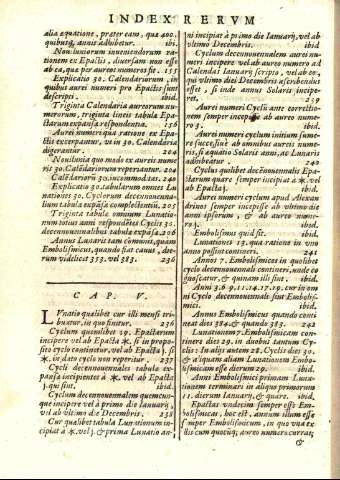 INDEX RERVM
alia equatione, præter eam, quæ 400.
quibusq; annis adhibetur. ibi.
Nouiluniorum inueniendorum ra-
tionem ex Epactis, diuersam non esse
ab ea, quæ per aureos numeros fit. 155
Explicatio 30. lunationum, in
quibus aurei numeri pro Epactis sunt
descripti. ibid.
Triginta Calendaria aureorum nu-
merorum, triginta lineis tabulæ Epa-
ctarum expansæ respondentia. 156
Aurei numeri qua ratione ex Epa-
ctis excerpantur, vt in 30. Calendaria
digerantur. 204
Nouilunia quo modo ex aureis nume-
ris 30. Calédariorū reperiantur. 204
Calédariorū 30. incommoditates. 240
Explicatio 30. tabularum omnes Lu-
nationes 30. Cyclorum decennouena-
lium tabulæ expansæ complectentiū. 205
Triginta tabulæ omnium Lunatio-
num totius anni respondentes Cyclis 30.
decennouenalibus tabulæ expansæ. 206
Annus Lunaris tam communis, quam
Embolismicus, quando fiat cauus, dee-
rum videlicet 353. vel 383. 236
CAP. V.
LVnatio quælibet cur illi mensi tri-
buatur, in quo finitur. 236
Cyclum quemlibet 29. Epactarum
incipere vel ab Epacta *. si in proposi-
to cyclo continetur, vel ab Epacta j. si
*. in dato cyclo non reperitur. 237
Cycli decennouennales tabulæ ex-
pansæ incipientes à *. vel ab Epactis
j. qui sint. ibid.
Cyclum decennouennalem quemcun-
que incipere vel à primo die Ianuarij,
vel ab vltimo die Decembris. 238
Cur quælibet tabula Lunationum in-
cipiat à *. vel j. & prima Lunatio an-
ni incipiat à primo die Ianuarij, vel ab
vltimo Decembris. ibid
Cyclum decennouennalem aurei nu-
meri incipere vel ab aureo numero ad
Calendas Ianuarij scripto, vel ab eo,
qui vltimo diei Decembris ascribendus
esset, si inde annus Solaris incipe-
ret. 239
Aurei numeri Cyclū ante correctio-
nem semper incepisse ab aureo nume-
ro 3. ibid.
Aurei numeri cyclum initium sume-
re successiuè ab omnibus aureis nume-
ris, si æquatio Solaris anni, ac Lunaris
adhibeatur 240
Cyclus quilibet decennouennalis Epa-
ctarum quare semper incipiat à *. vel
ab Epacta j. ibid.
Aurei numeri cyclum apud Alexan-
drinos semper incepisse ab vltimo die
anni ipsorum, & ab aureo nume-
ro 3. ibid.
Embolismus quid sit. ibid.
Lunationes 13. qua ratione in vno
anno possint contineri. 241
Annos 7. Embolismicos in quolibet
cyclo decennouennali contineri, vnde co-
gnoscatur, & quinam illi sint. ibid.
Anni 3.6 9.11.14.17.19. cur in om
ni Cyclo decennouennali sint Embolis-
mici. ibid.
Annus Embolismicus quando conti-
neat dies 384. & quando 383. 242
Lunationem 7. Embolismicam con-
tinere dies 29. in duobus tantum Cy-
clis: In alijs autem 28. Cyclis dies 30.
& aliquam aliam Lunationem Embo-
lismicam esse dierum 29. ibid.
Annis Embolismici primam Luna-
tionem terminari in aliquo primorum
11. dierum Ianuarij, & quare. ibid.
Epactas vndecim semper esse Em-
bolismicas, hoc est, annum illum esse
semper Embolismicum, in quo vna ex
illis cum quocūq; aureo numero currat;
&